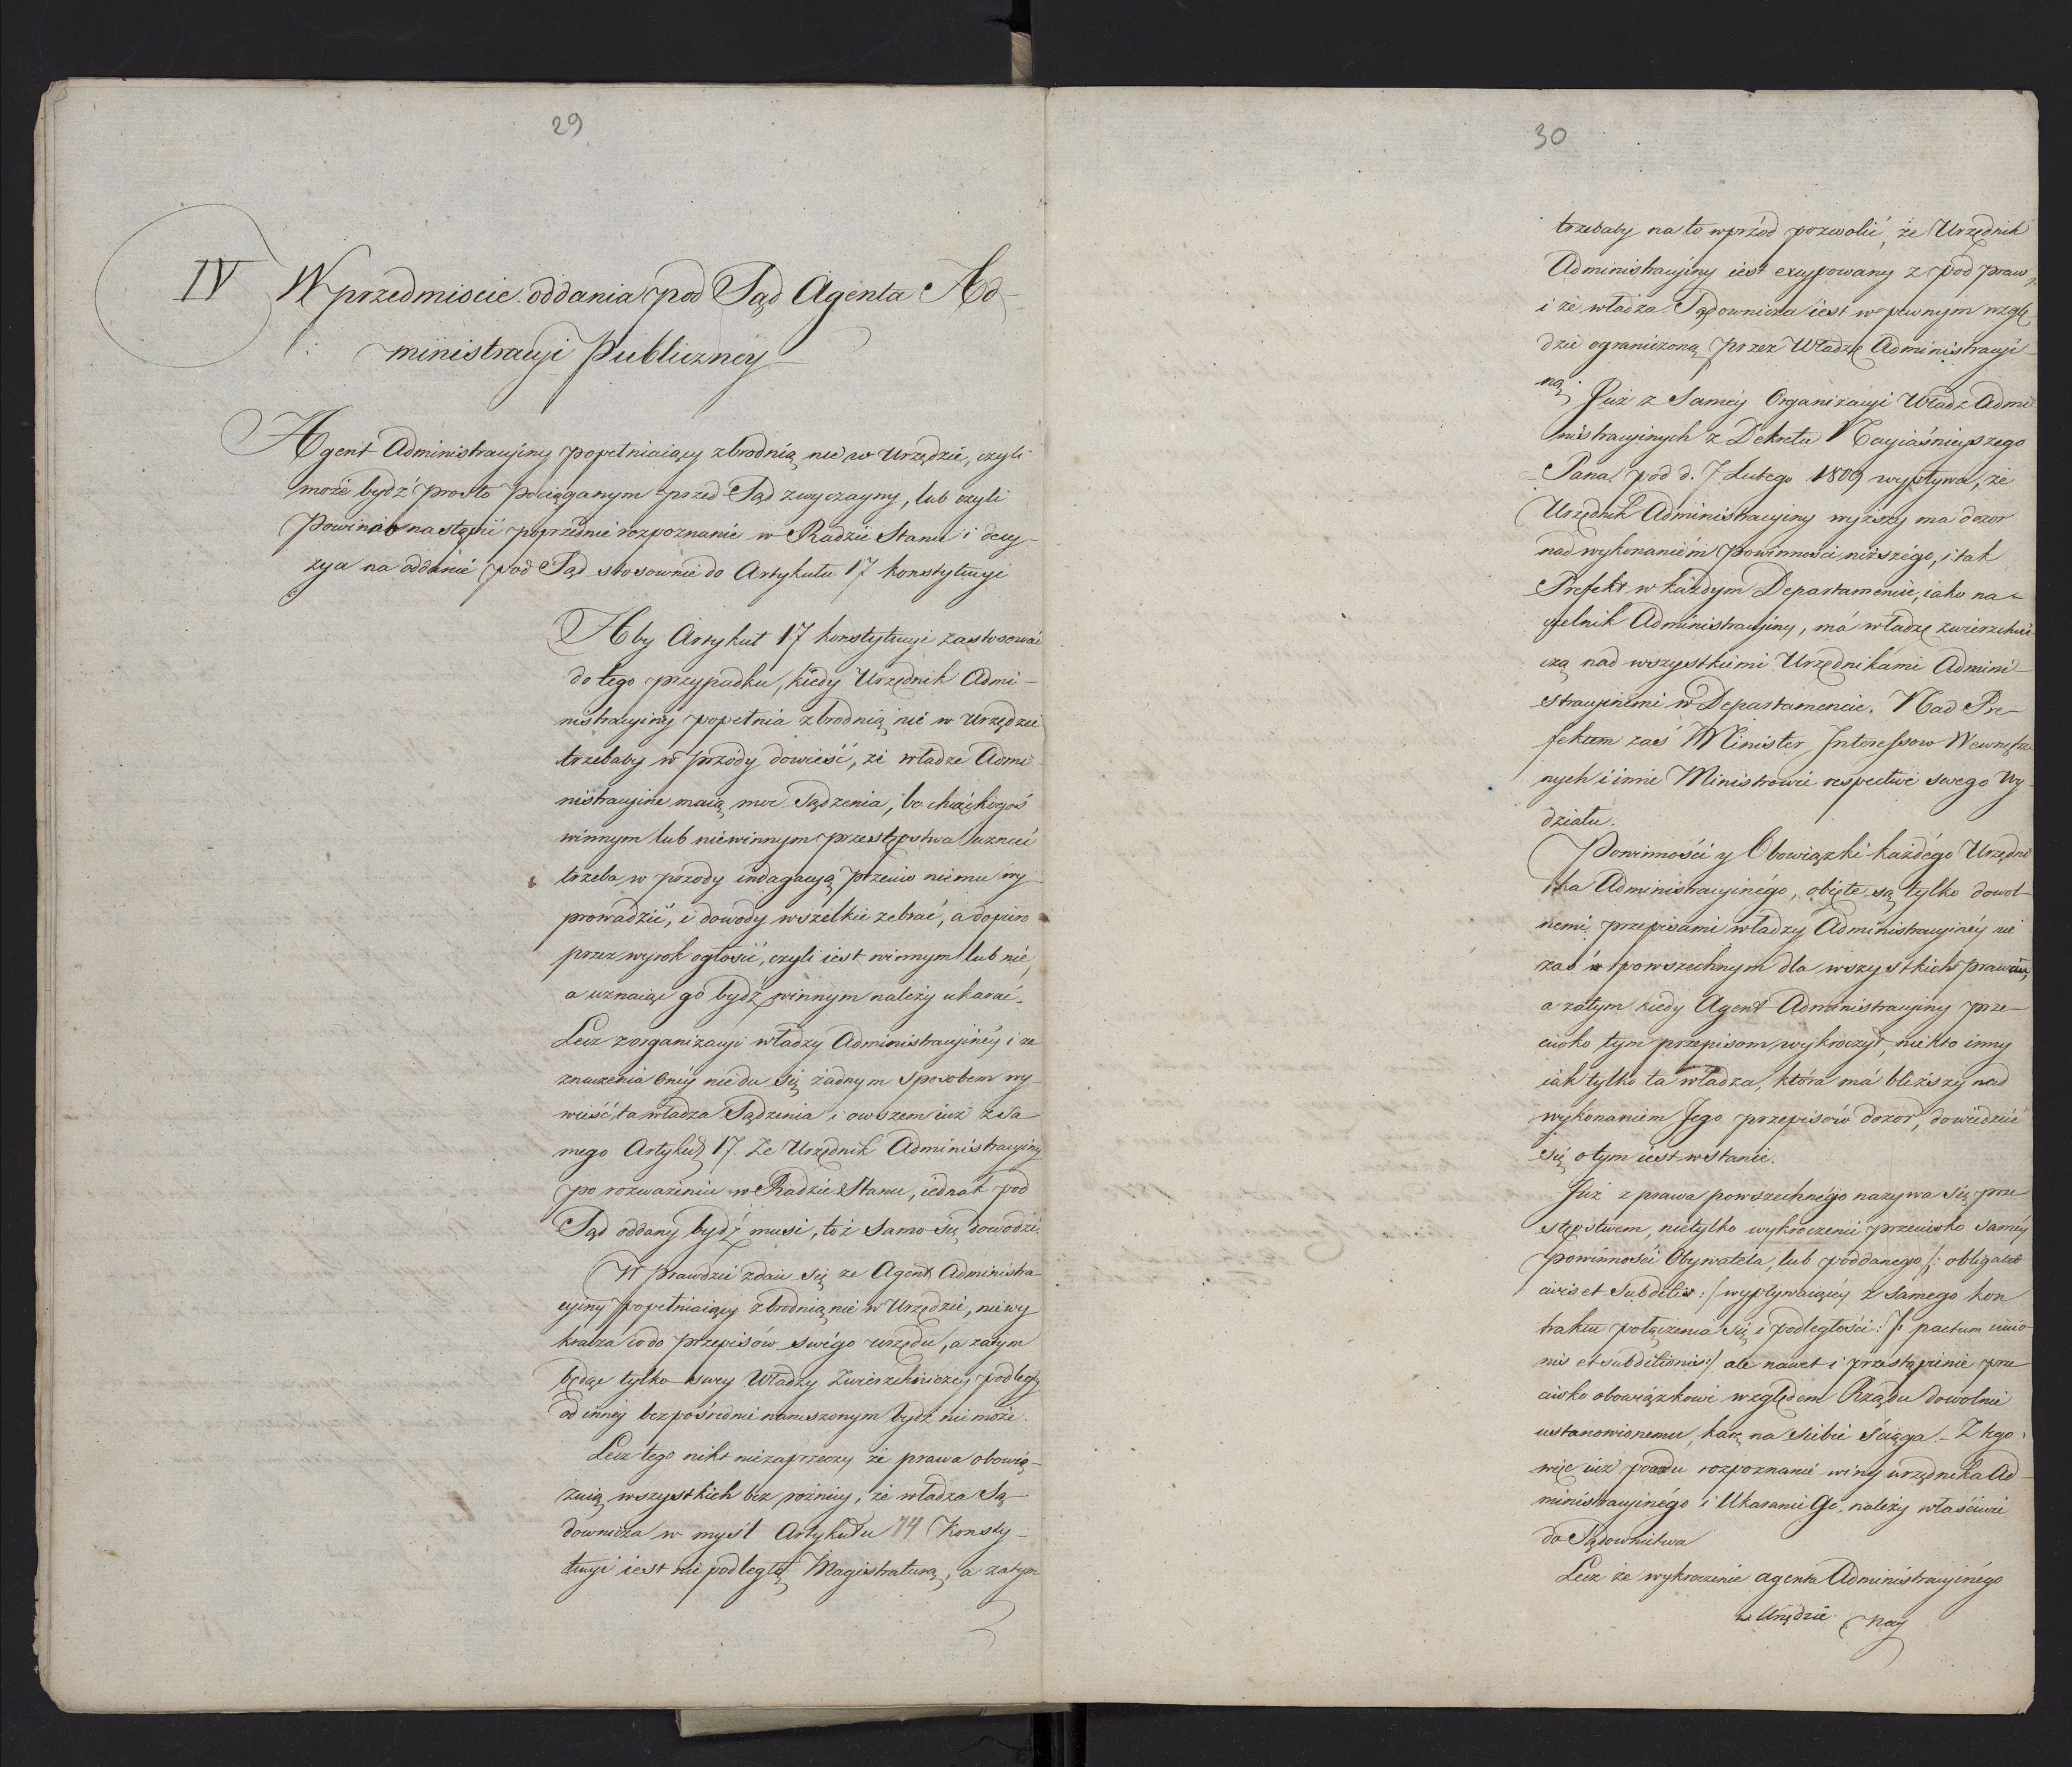 29
IV W przedmiocie oddania pod Sąd Agenta Ad-
ministracyi Publiczney
Agent Administracyiny popełniaiący zbrodnią nie w Urzędzie, czyli
może bydź prosto pociąganym przed Sąd zwyczayny, lub czyli
Powinno nastąpić poprzednie rozpoznanie w Radzie Stanu i decy-
zya na oddanie pod Sąd stosownie do Artykułu 17 konstytucyi
Aby Artykuł 17 konstytucyi zastosować
do tego przypadku, kiedy Urzędnik Admi-
nistracyiny popełnia zbrodnią nie w Urzędzie
trzebaby w przódy dowieść, że władze Admi-
nistracyine maią moc Sądzenia, bo chcąc kogoś
winnym lub niewinnym przestępstwa uznać
trzeba w przody indagacyą przeciw niemu wy-
prowadzić, i dowody wszelkie zebrać, a dopiero
przez wyrok ogłosić, czyli iest winnym lub nie,
a uznaiąc go bydź winnym należy ukarać.
Lecz z organizacyi władzy Administracyinéy i ze
znaczenia Onéy nie da się żadnym sposobem wy-
wieść ta władza Sądzenia i owszem iuż z Sa-
mego Artykuł 17. Że Urzędnik Administracyiny
po rozważeniu w Radzie Stanu, iednak pod
Sąd oddany bydź musi, toż Samo się dowodzi.
W prawdzie zdaie się że Agent Administra-
cyiny popełniaiący zbrodnią nie w Urzędzie, nie wy
kracza co do przepisów swégo urzędu, a zatym
będąc tylko swey Władzy Zwierzchniczey podległy
od innéy bezpośrednie naruszonym bydź nie może.
Lecz tego nikt nie zaprzeczy że prawa obowią-
zuią wszystkich bez różnicy, że władza Są-
downicza w myśl Artykułu 74 Konsty-
tucyi iest nie podległą Magistraturą, a zatym
30
trzebaby na to wprzód pozwolić, że Urzędnik
Administracyiny iest excypowany z pod praw,
i że władza Sądownicza iest w pewnym wzglę
dzie ograniczoną przez Władzę Administracyi-
ną.
Już z Saméy Organizacyi Władz Admi
nistracyinych z Dekretu Nayiaśnieyszego
Pana pod d. 7 Lutego 1809 wypływa, że
Urzędnik Administracyiny wyższy ma dozor
nad wykonaniém powinności niższégo, i tak
Prefekt w każdym Departamencie, iako na-
czelnik Administracyiny, má władzę zwierzchni
czą nad wszystkiemi Urzędnikami Admini-
stracyinémi w Departamencie. Nad Pre-
fektem zaś Minister Interessow Wewnętrz-
nych i inni Ministrowie respective swego Wy-
działu.
Powinności y Obowiązki każdégo Urzędni
ka Administracyinégo, obięte są tylko dowol-
nemi przepisami władzy Administracyinéy nie
zaś powszechnym dla wszystkich prawem,
a zatym kiedy Agent Administracyiny prze-
ciwko tym przepisom wykroczył, nie kto inny
iak tylko ta władza, która má bliższy nad
wykonaniem Jego przepisów dozor, dowiedzieć
się o tym iest w stanie.
Już z prawa powszechnégo nazywa się prze
stępstwem, nietylko wykroczenie przeciwko saméy
powinności Obywatela, lub poddanego /: obligatio
civis et Subditis :/ wypływaiącéy z samego kon
traktu połączenia się i podległości /: pactum unio-
nis et subditionis :/ ale nawet i przestąpienie prze
ciwko obowiązkowi względem Rządu dowolnie
ustanowionemu, karę na siebie ściąga. - Z tego
więc iuż powodu rozpoznanie winy urzędnika Ad-
ministracyinégo i Ukaranie Go, należy właściwie
do Sądownictwa
Lecz że wykroczenie agenta Administracyinégo
w Urzędzie nay